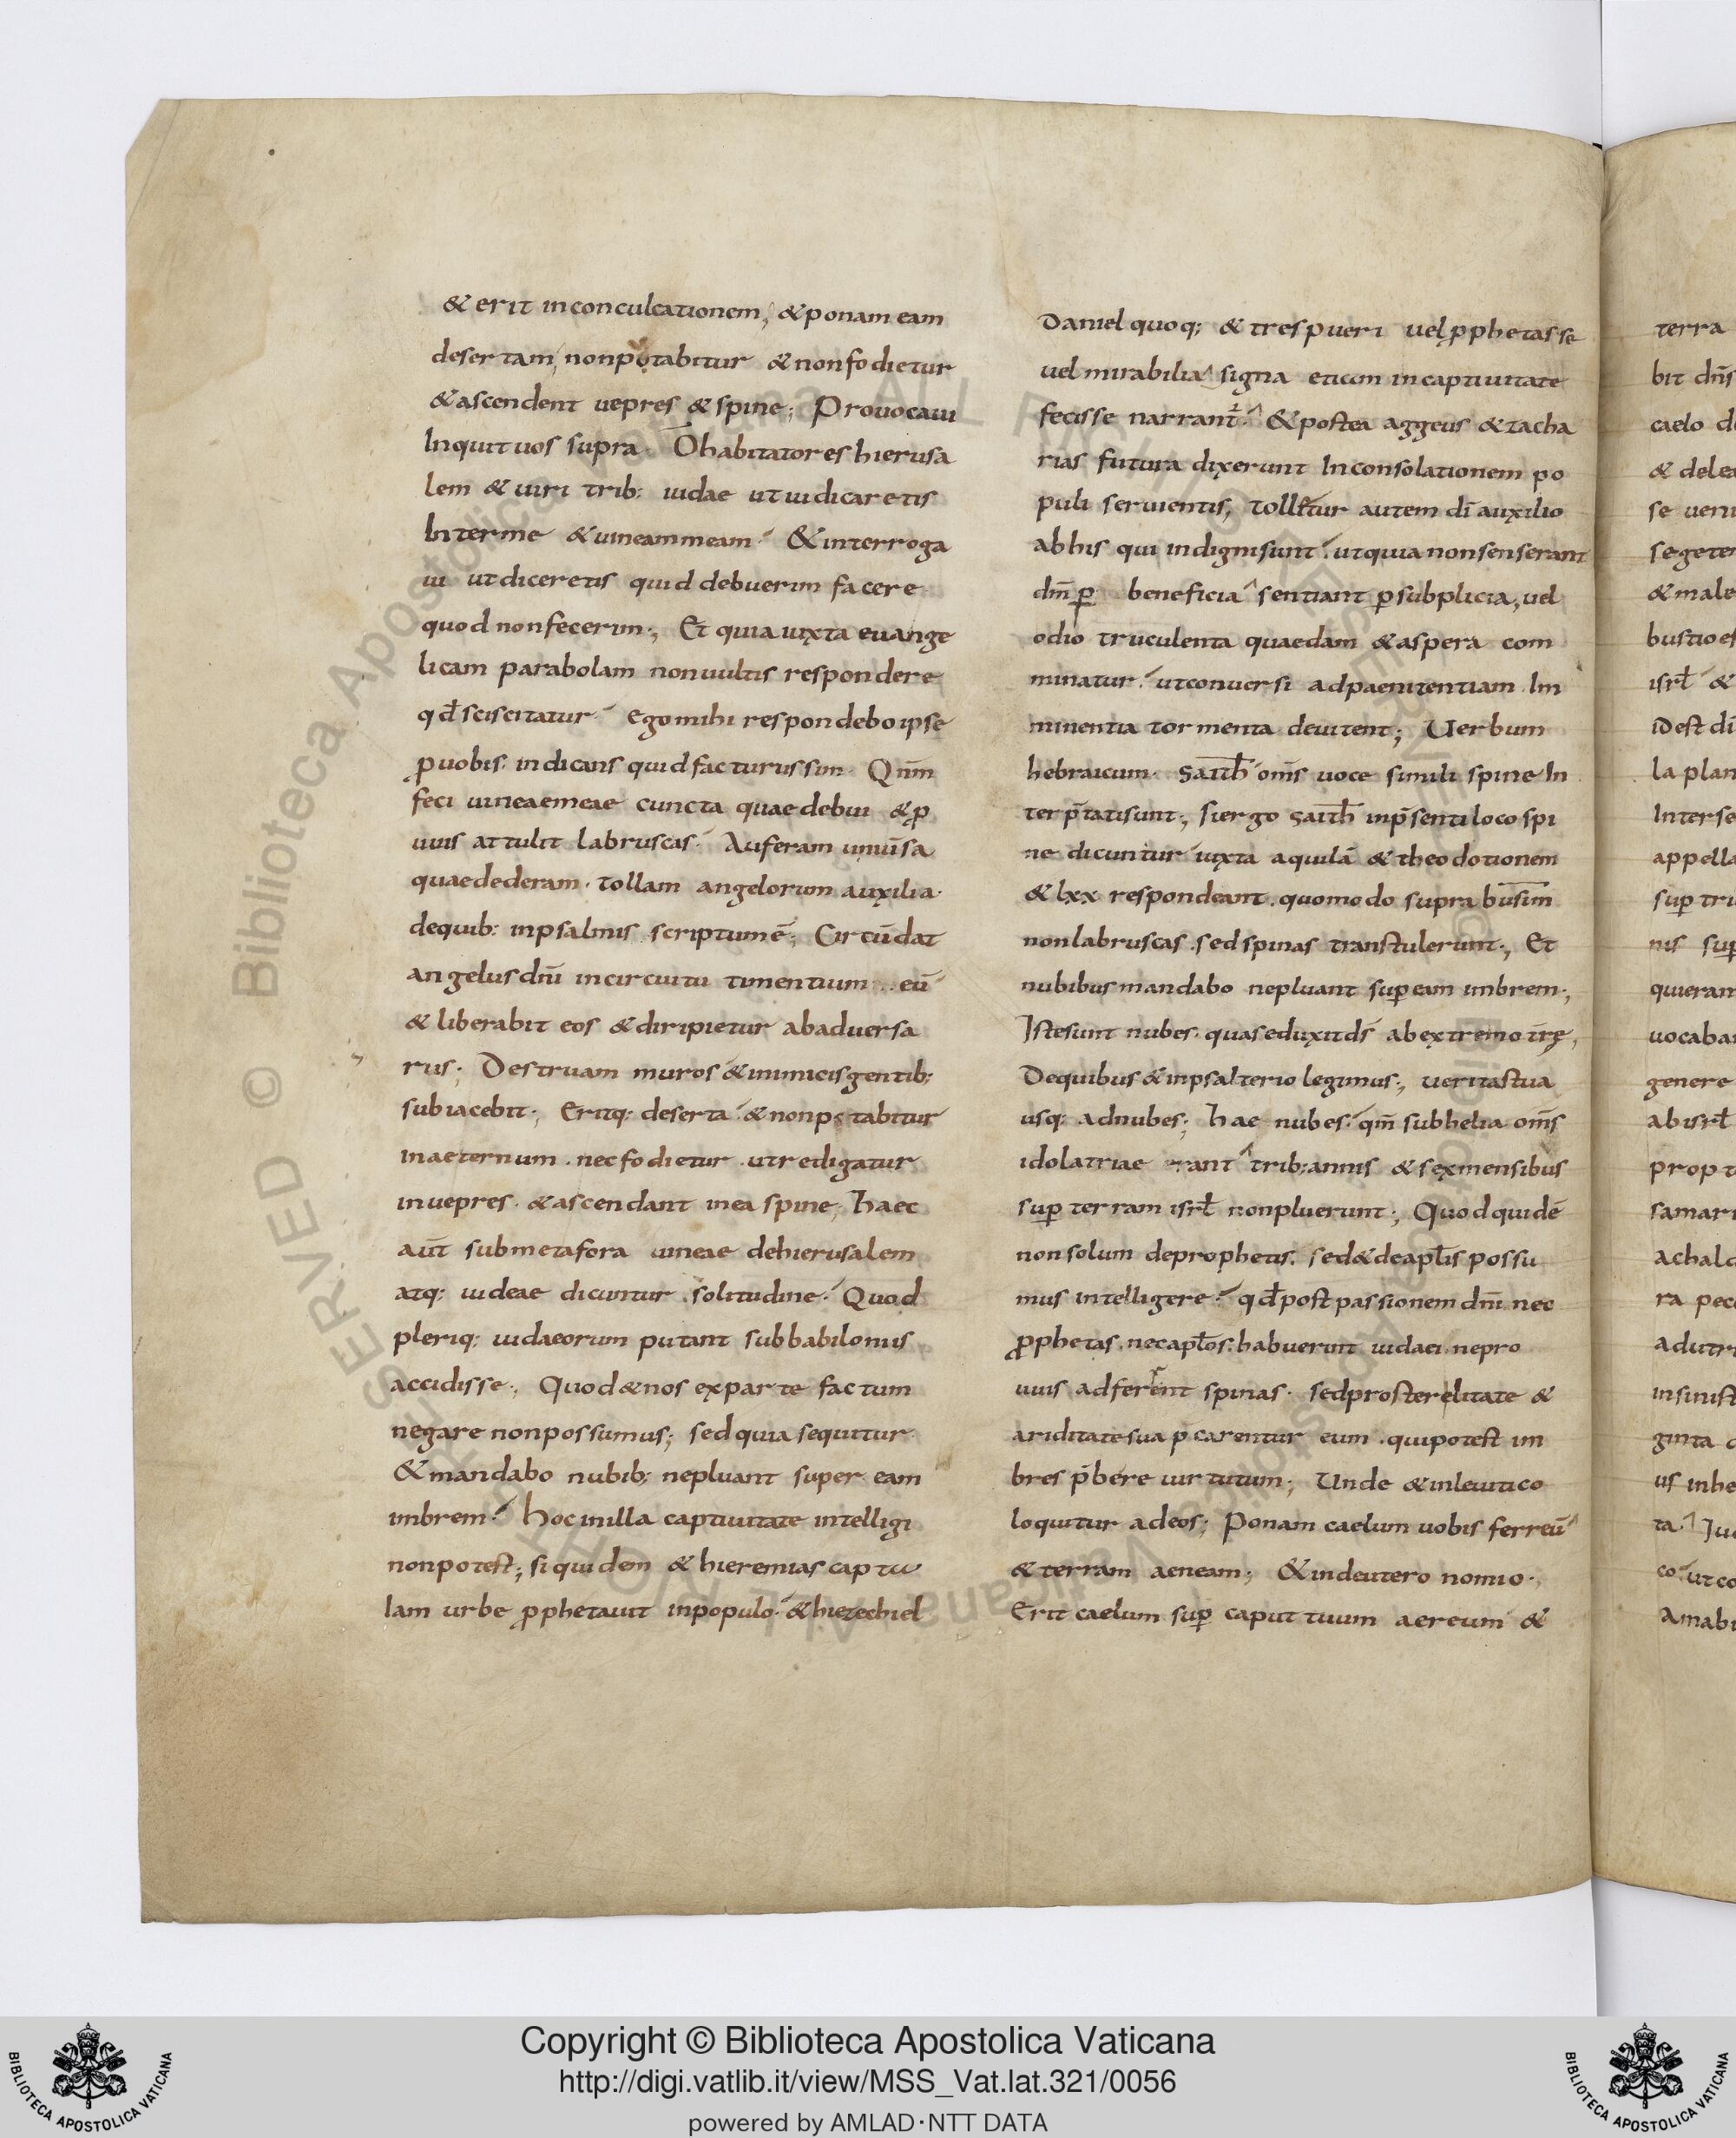 & erit inconculcationem, & ponam eam
desertam, nonpotabitur & nonfodietur
& ascendent uepres & spine; Prouocaui
Inquit uos supra. O habitatores hierusa
lem & uiri trib: iudae ut iudicaretis
Inter me & uineam meam. & interroga
ui ut diceretis quid debuerim facere
quod non fecerim; Et quia iuxta euange
licam parabolam non uultis respondere
qđ sciscitatur. ego mihi respondebo ipse
ꝓ uobis. indicans quid facturus sim. Qnm̄
feci uineae meae cuncta quae debui & ꝓ
uuis attulit labruscas. Auferam uniūsa
quae dederam. tollam angelorum auxilia.
de quib: in psalmis scriptum ē; Circūdat
angelus dn̄i in circuitu timentium eū
& liberabit eos & diripietur ab aduersa
rus; Destruam muros & inimicis gentib;
subiacebit; Eritq: deserta & non potabitur
in aeternum. nec fodietur. ut redigatur
in uepres. & ascendant in ea spine, haec
aut̄ sub metafora uineae de hierusalem
atq: iudeae dicuntur solitudine. Quod
pleriq: iudaeorum putant sub babilonus
accidisse; Quod & nos ex parte factum
negare non possumus; sed quia sequitur.
& mandabo nubib; ne pluant super eam
imbrem. hoc in illa captiuitate intelligi
non potest; siquidem & hieremias captu
lam urbe ꝓphetauit in populo. & hiezechiel
Daniel quoq; & tres pueri uel ꝓphetasse
uel mirabilia signa etiam in captiuitate
fecisse narrant̄. & postea aggeus & zacha
rias futura dixerunt In consolationem po
puli seruientis, tolletur autem dī auxilio
ab his qui indigni sunt. ut quia non senserant
dm̄ ꝑ beneficia sentiant ꝑ subplicia, uel
odio truculenta quaedam & aspera com
minatur. ut conuersi ad paenitentiam Im
minentia tormenta deuitent; Uerbum
hebraicum. saith om̄s uoce simili spine In
terp̄tati sunt; si ergo saith in p̄senti loco spi
ne dicuntur iuxta aquilā & theodotionem
& lxx respondeant. quomodo supra busim
non labruscas. sed spinas transtulerunt; Et
nubibus mandabo ne pluant suꝑ eam imbrem;
Iste sunt nubes. quas eduxit ds̄ ab extremo tr̄ę,
De quibus & in psalterio legimus; ueritas tua
usq: ad nubes; hae nubes. qm̄ sub helia om̄s
idolatriae erant trib; annis & sex mensibus
suꝑ terram isrl̄ non pluerunt; Quod quidē
non solum de prophetis. sed & de apl̄is possu
mus intelligere. qđ post passionem dn̄i nec
ꝓphetas. nec apl̄os. habuerunt iudaei. ne pro
uuis adferrent spinas. sed pro sterelitate &
ariditate sua p̄carentur eum. qui potest im
bres p̄bere uirtutum; Unde & in leuitico
loquitur ad eos; Ponam caelum uobis ferreū
& terram aeneam; & in deutero nomio.
Erit caelum suꝑ caput tuum aereum &
terra
bit dn̄s
caelo d
& delea
se ueni
segetem
& male
bustio es
isrl̄ &
Idest dī
la plan
Interse
appella
suꝑ tri
nis suꝑ
quieram
uocaba
genere
ab isrl̄
prop t
samari
achald
ra pec
ad utr
in sinist
ginta
us inhe
ta. Iu
co. ut co
Amabi
Copyright © Biblioteca Apostolica Vaticana
http://digi.vatlib.it/view/MSS_Vat.lat.321/0056
powered by AMLAD·NTT DATA
BIBLIOTECA APOSTOLICA VATICANA
BIBLIOTECA APOSTOLICA VATICANA